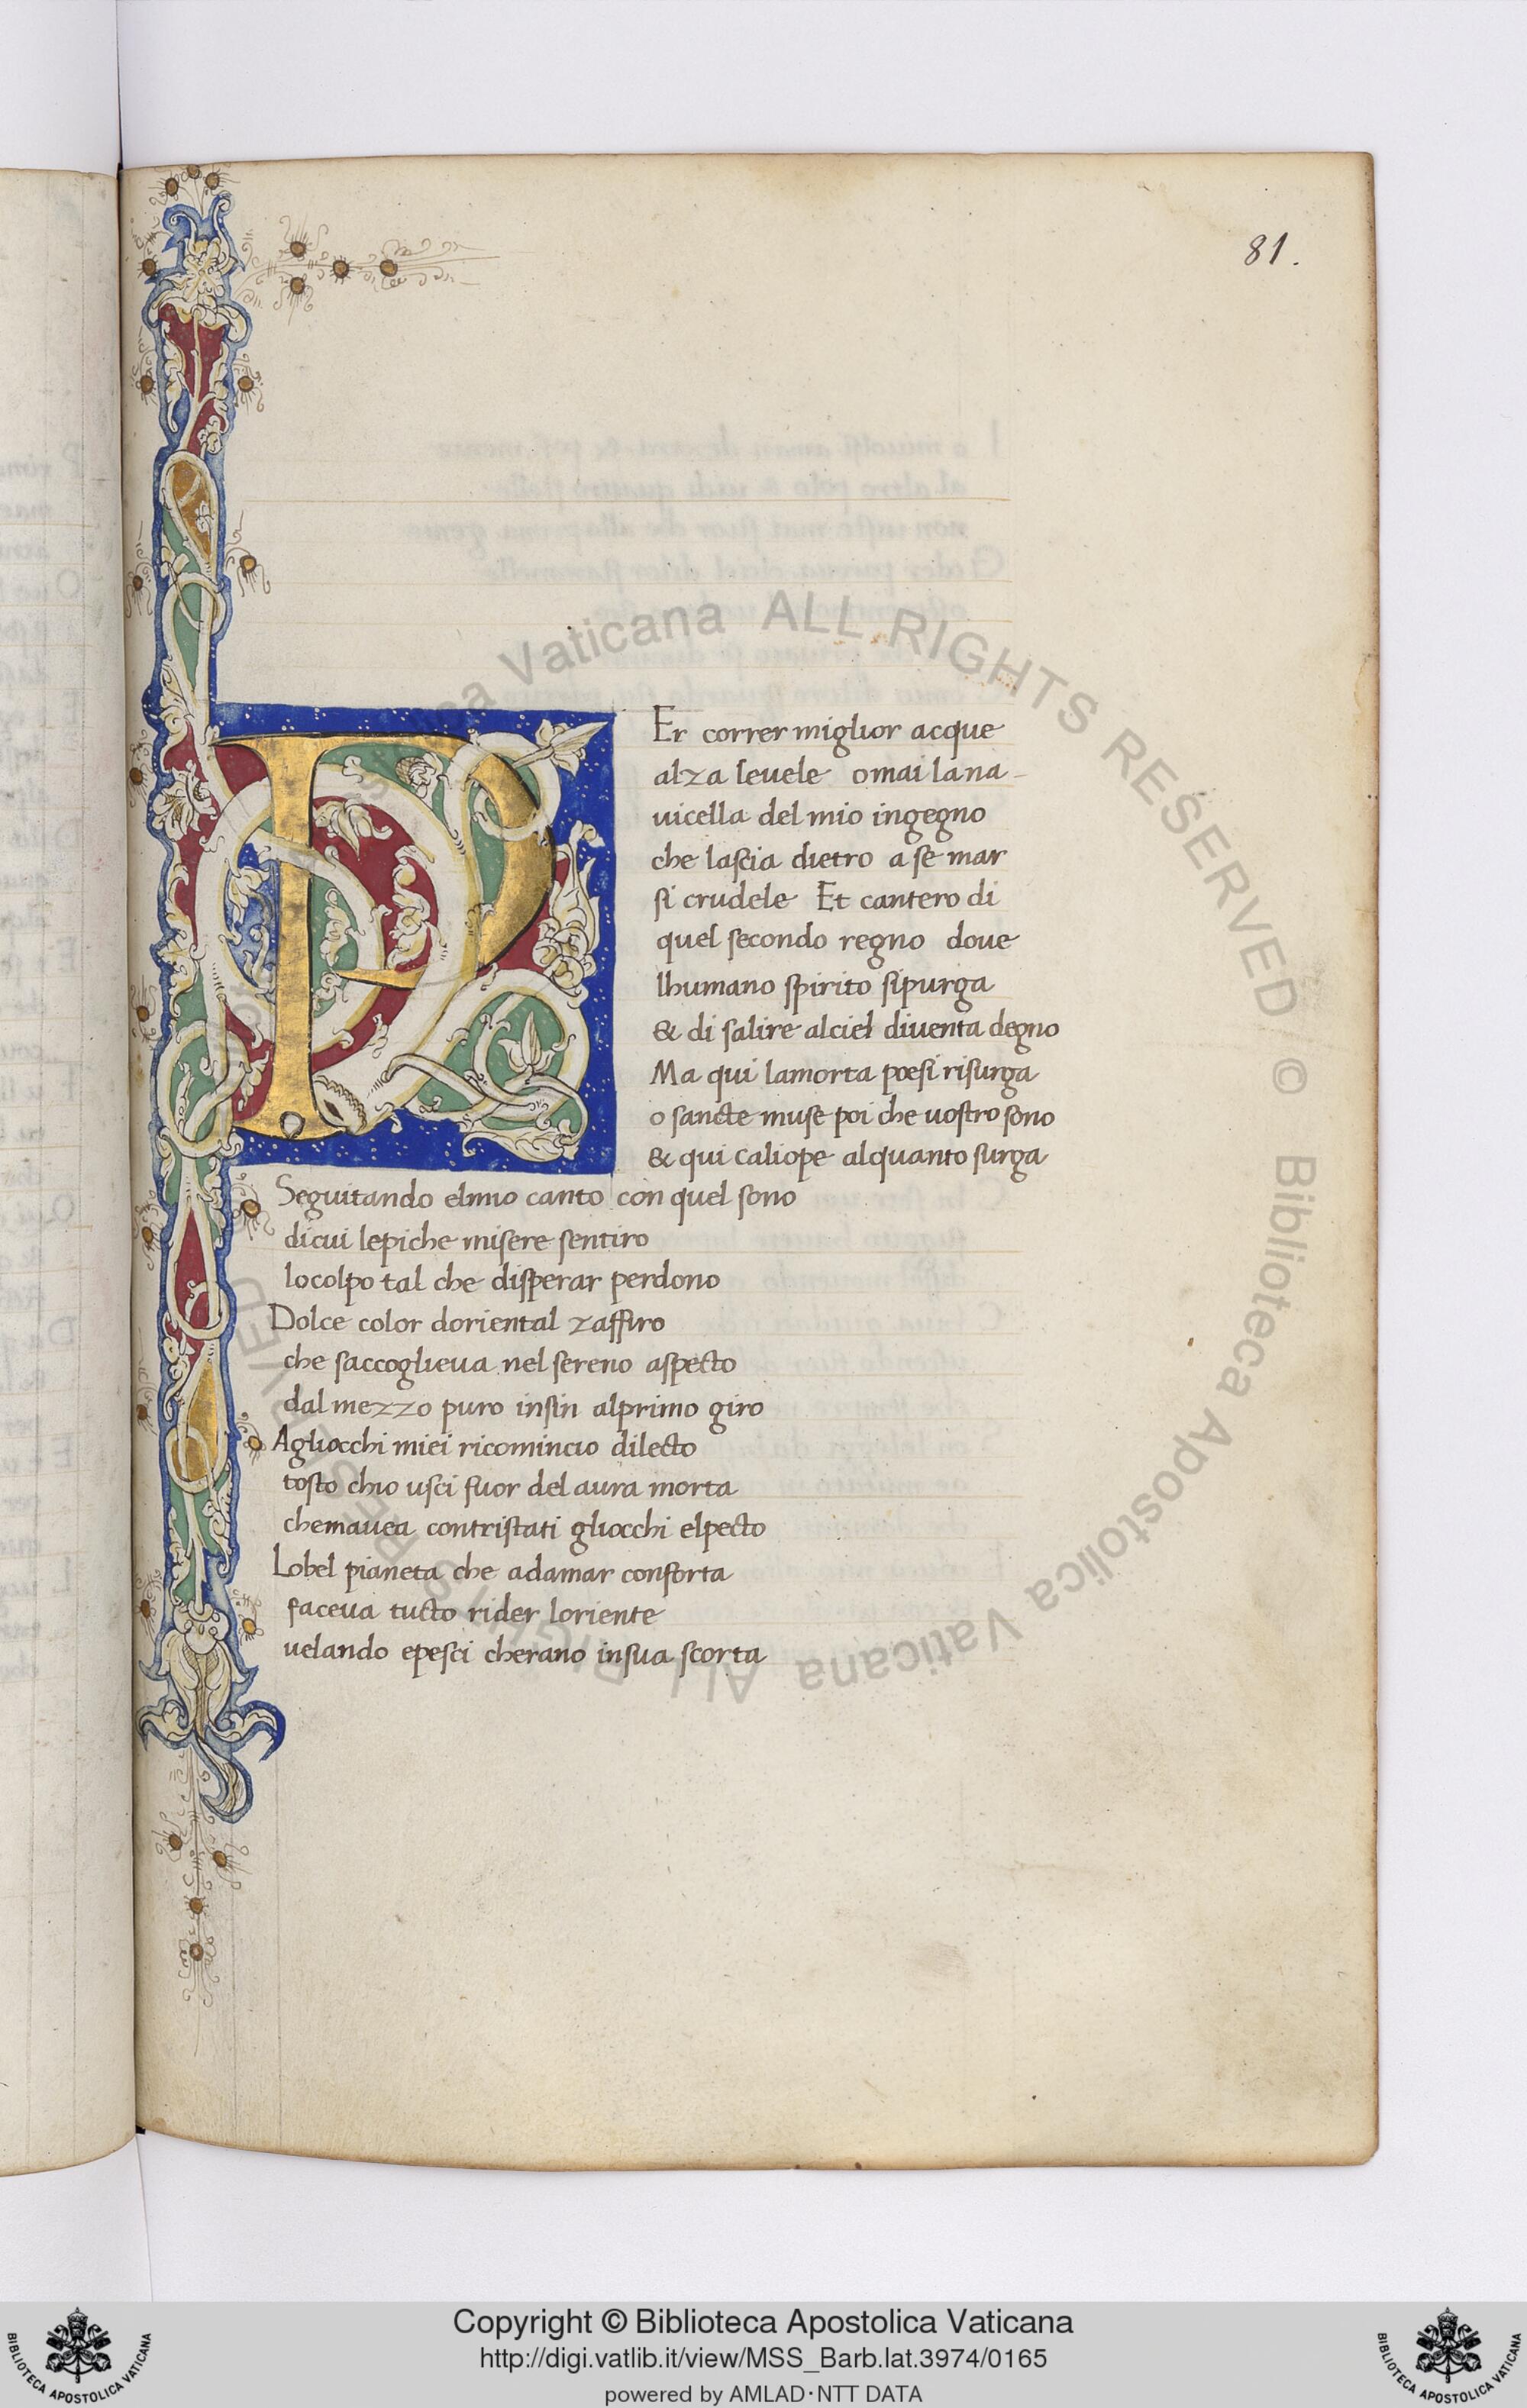 81.
PEr correr miglior acque
alza leuele omai la na-
uicella del mio ingegno
che lascia dietro a se mar
si crudele Et cantero di
quel secondo regno doue
lhumano spirito sipurga
& di salire alciel diuenta degno
Ma qui lamorta poesi risurga
o sancte muse poi che uostro sono
& qui caliope alquanto surga
Seguitando elmio canto con quel sono
dicui lepiche misere sentiro
locolpo tal che disperar perdono
Dolce color doriental zaffiro
che saccoglieua nel sereno aspecto
dal mezzo puro insin alprimo giro
Agliocchi miei ricomincio dilecto
tosto chio usci fuor del aura morta
chemauea contristati gliocchi elpecto
Lobel pianeta che adamar conforta
faceua tucto rider loriente
uelando epesci cherano insua scorta
Biblioteca Apostolica Vaticana ALL RIGHTS RESERVED ©
Copyright © Biblioteca Apostolica Vaticana
http://digi.vatlib.it/view/MSS_Barb.lat.3974/0165
powered by AMLAD·NTT DATA
BIBLIOTECA APOSTOLICA VATICANA
BIBLIOTECA APOSTOLICA VATICANA